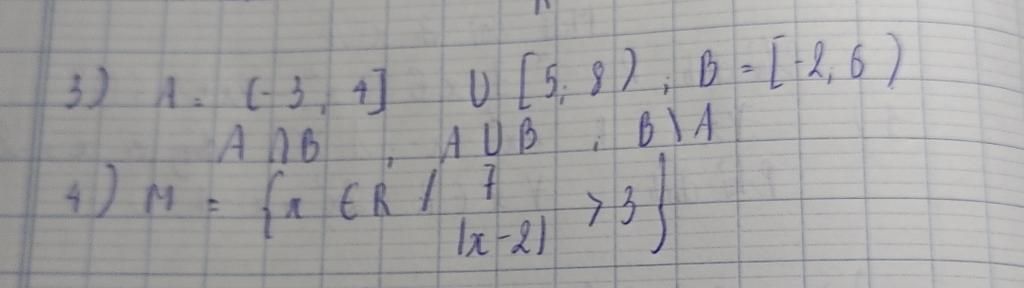 3) A = (-3, 4] U [5, 8), B = [-2, 6)
A ∩ B, A U B, B \ A
4) M = {x ∈ R / 7/|x-2| > 3}